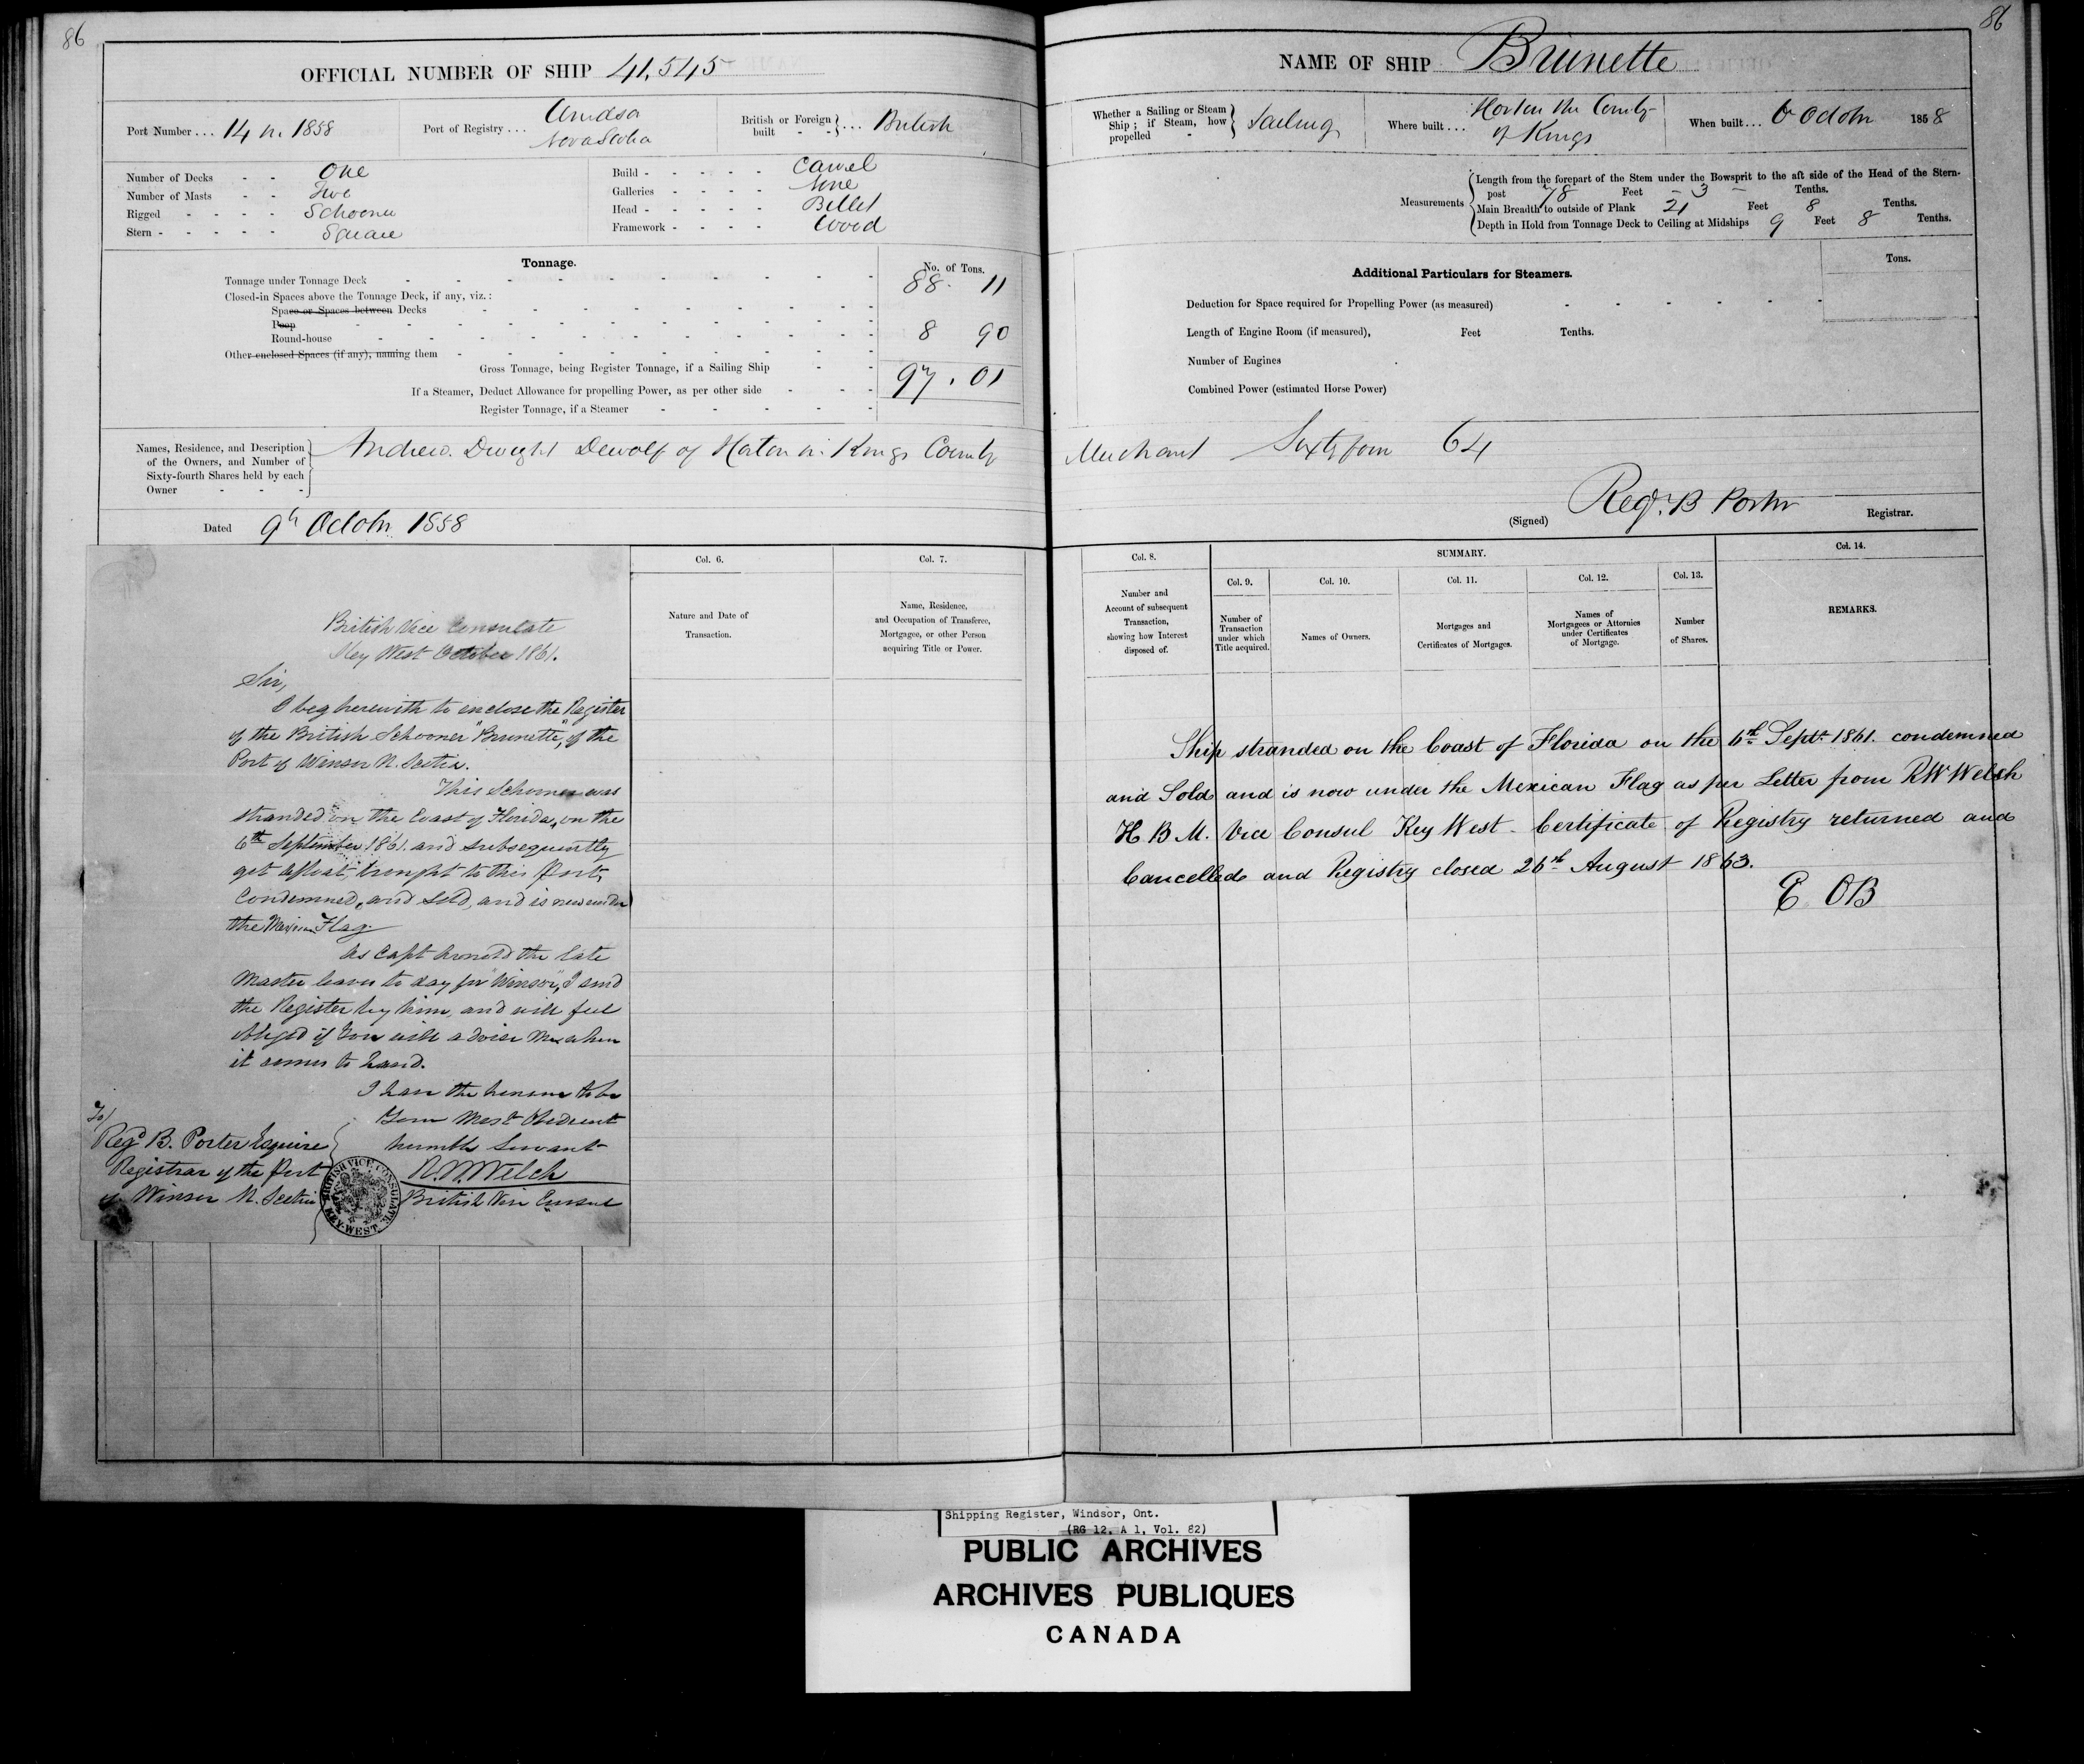 86
OFFICIAL NUMBER OF SHIP 41,545
Port Number ... 14 in 1858
Port of Registry ... Windsor
Nova Scotia
British or Foreign built - - } ... British
Number of Decks - - One
Number of Masts - - Two
Rigged - - - - Schooner
Stern - - - - - Square
Build - - - - - Carvel
Galleries - - - - None
Head - - - - - Billet
Framework - - - - Wood
Tonnage.
No. of Tons.
Tonnage under Tonnage Deck 88. 11
Closed-in Spaces above the Tonnage Deck, if any, viz.:
Space or Spaces between Decks
Poop
Round-house 8 90
Other enclosed Spaces (if any), naming them
Gross Tonnage, being Register Tonnage, if a Sailing Ship 97.01
If a Steamer, Deduct Allowance for propelling Power, as per other side
Register Tonnage, if a Steamer
Names, Residence, and Description
of the Owners, and Number of
Sixty-fourth Shares held by each
Owner
Andrew Dwight Dewolf of Horton in Kings County
Dated 9th October 1858
British Vice Consulate
Key West October 1861.
Sir,
I beg herewith to enclose the Register
of the British Schooner "Brunette", of the
Port of Winsor N. Scotia.
This Schooner was
stranded on the Coast of Florida, on the
6th September 1861. and subsequently
got afloat, brought to this Port,
Condemned, and Sold, and is now under
the Mexican Flag.
As Capt Arnold the late
Master leaves to day for "Winsor", I send
the Register by him, and will feel
obliged if You will advise me when
it comes to hand.
I have the honour to be
Your Most Obedient
humble Servant
R.W. Welch
British Vice Consul
To/
Regd B. Porter Esquire
Registrar of the Port
of Winsor N. Scotia
BRITISH VICE CONSULATE
KEY-WEST
Col. 6.
Nature and Date of
Transaction.
Col. 7.
Name, Residence,
and Occupation of Transferee,
Mortgagee, or other Person
acquiring Title or Power.
86
NAME OF SHIP Brunette
Whether a Sailing or Steam
Ship; if Steam, how
propelled - } Sailing
Where built ... Horton in the County
of Kings
When built ... 6 Octobr 1858
Measurements
Length from the forepart of the Stem under the Bowsprit to the aft side of the Head of the Stern-
post 78 Feet - 3 - Tenths.
Main Breadth to outside of Plank 21 Feet 8 Tenths.
Depth in Hold from Tonnage Deck to Ceiling at Midships 9 Feet 8 Tenths.
Tons.
Additional Particulars for Steamers.
Deduction for Space required for Propelling Power (as measured)
Length of Engine Room (if measured), Feet Tenths.
Number of Engines
Combined Power (estimated Horse Power)
Merchant Sixty four 64
(Signed) Regd. B Porter Registrar.
Col. 8.
Number and
Account of subsequent
Transaction,
showing how Interest
disposed of.
SUMMARY.
Col. 9.
Number of
Transaction
under which
Title acquired.
Col. 10.
Names of Owners.
Col. 11.
Mortgages and
Certificates of Mortgages.
Col. 12.
Names of
Mortgagees or Attornies
under Certificates
of Mortgage.
Col. 13.
Number
of Shares.
Col. 14.
REMARKS.
Ship stranded on the Coast of Florida on the 6th Septr. 1861. condemned
and Sold and is now under the Mexican Flag as per Letter from RW Welsh
H B M. Vice Consul Key West - Certificate of Registry returned and
Cancelled and Registry closed 26th August 1863.
E OB
Shipping Register, Windsor, Ont.
(RG 12, A 1, Vol. 82)
PUBLIC ARCHIVES
ARCHIVES PUBLIQUES
CANADA